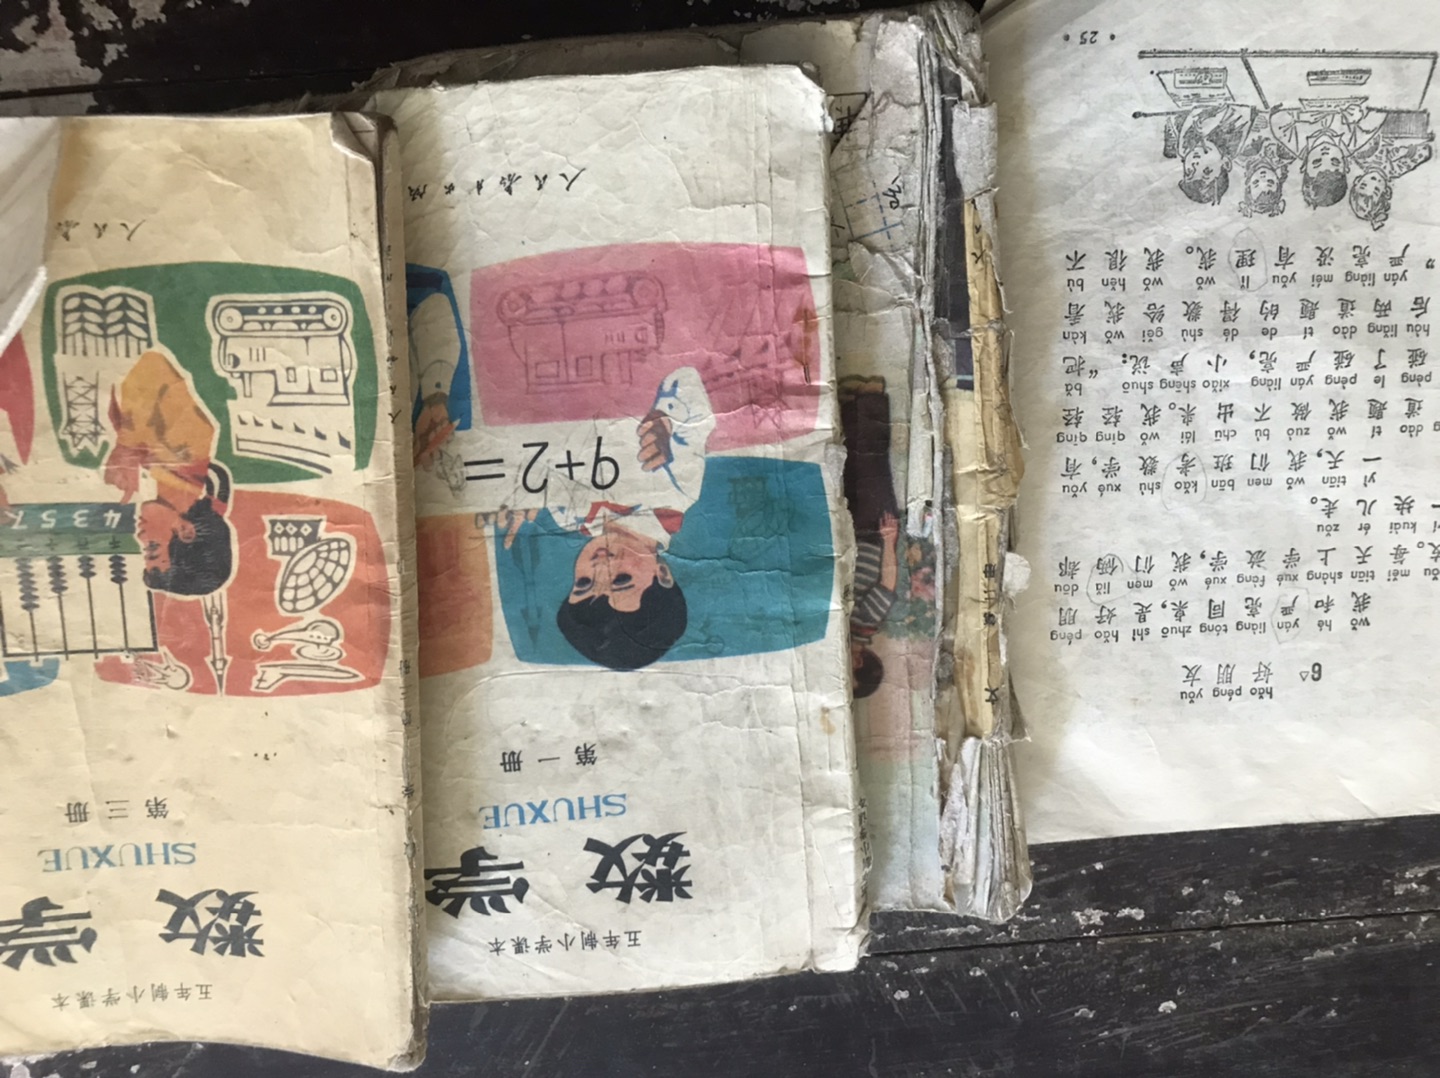 五年制小学课本
数学
SHUXUE
第一册
9+2=
人民教育出版
五年制小学课本
数学
SHUXUE
第三册
4357
人民教
hǎo péng yǒu
6△ 好朋友
wǒ hé yán liàng tóng zhuō shì hǎo péng
我和严亮同桌,是好朋
yǒu měi tiān shàng xué fàng xué wǒ men liǎ dōu
友。每天上学放学,我们俩都
yí kuài ér zǒu
一块儿走。
yì tiān wǒ men bān kǎo shù xué yǒu
一天,我们班考数学,有
dào tí wǒ zuò bù chū lái wǒ qīng qīng
道题我做不出来。我轻轻
pèng le pèng yán liàng xiǎo shēng shuō bǎ
碰了碰严亮,小声说:“把
hòu liǎng dào tí de dé shù gěi wǒ kàn
后两道题的得数给我看
yán liàng méi yǒu lǐ wǒ wǒ hěn bù
”严亮没有理我。我很不
·25·